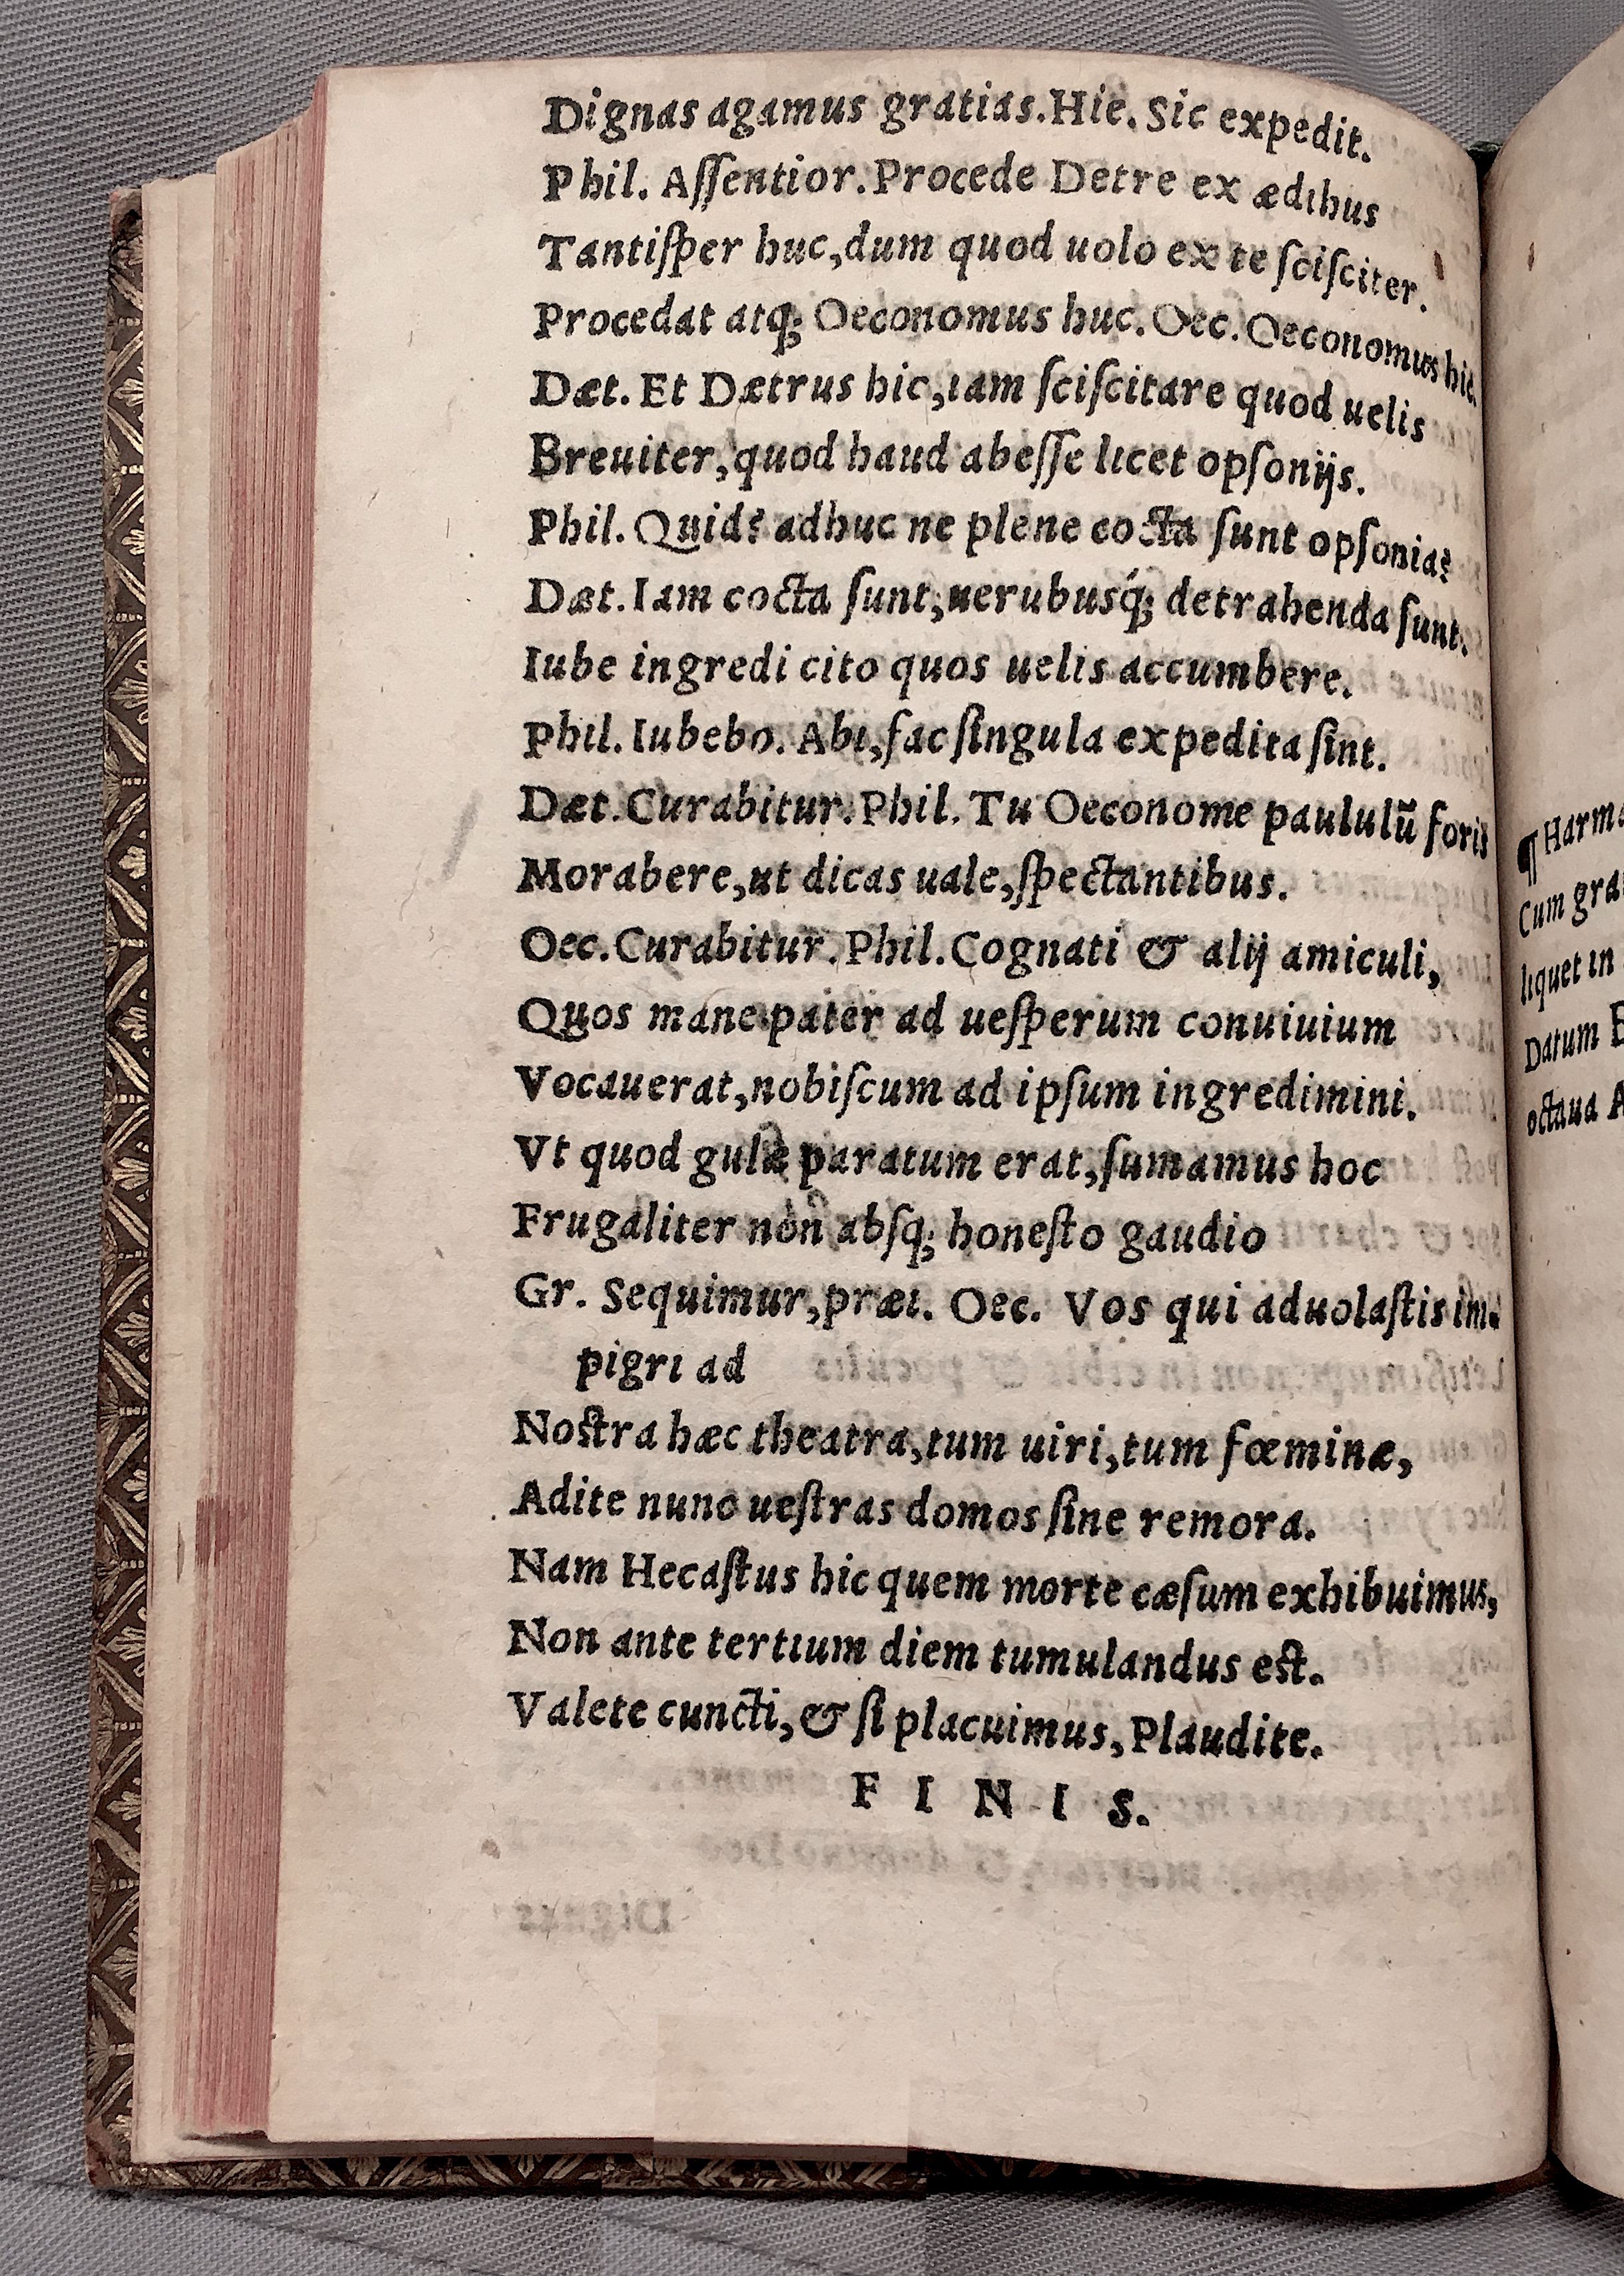 Dignas agamus gratias. Hie. Sic expedit.
Phil. Aſſentior. Procede Detre ex ædibus
Tantiſper huc, dum quod uolo ex te ſciſciter.
Procedat atq; Oeconomus huc. Oec. Oeconomus hic.
Dæt. Et Dætrus hic, iam ſciſcitare quod uelis
Breuiter, quod haud abeſſe licet opſonijs.
Phil. Quid? adhuc ne plene cocta ſunt opſonia?
Dæt. Iam cocta ſunt, uerubusq́; detrahenda ſunt.
Iube ingredi cito quos uelis accumbere.
Phil. Iubebo. Abi, fac ſingula expedita ſint.
Dæt. Curabitur. Phil. Tu Oeconome paululū foris
Morabere, ut dicas uale, ſpectantibus.
Oec. Curabitur. Phil. Cognati & alij amiculi,
Quos mane pater ad ueſperum conuiuium
Vocauerat, nobiſcum ad ipſum ingredimini.
Vt quod gulæ paratum erat, ſumamus hoc
Frugaliter non abſq; honeſto gaudio
Gr. Sequimur, præi. Oec. Vos qui aduolaſtis im-
pigri ad
Noſtra hæc theatra, tum uiri, tum fœminæ,
Adite nunc ueſtras domos ſine remora.
Nam Hecaſtus hic quem morte cæſum exhibuimus,
Non ante tertium diem tumulandus eſt.
Valete cuncti, & ſi placuimus, Plaudite.
F I N I S.
¶ Harm
Cum gra
liquet in
Datum
octaua